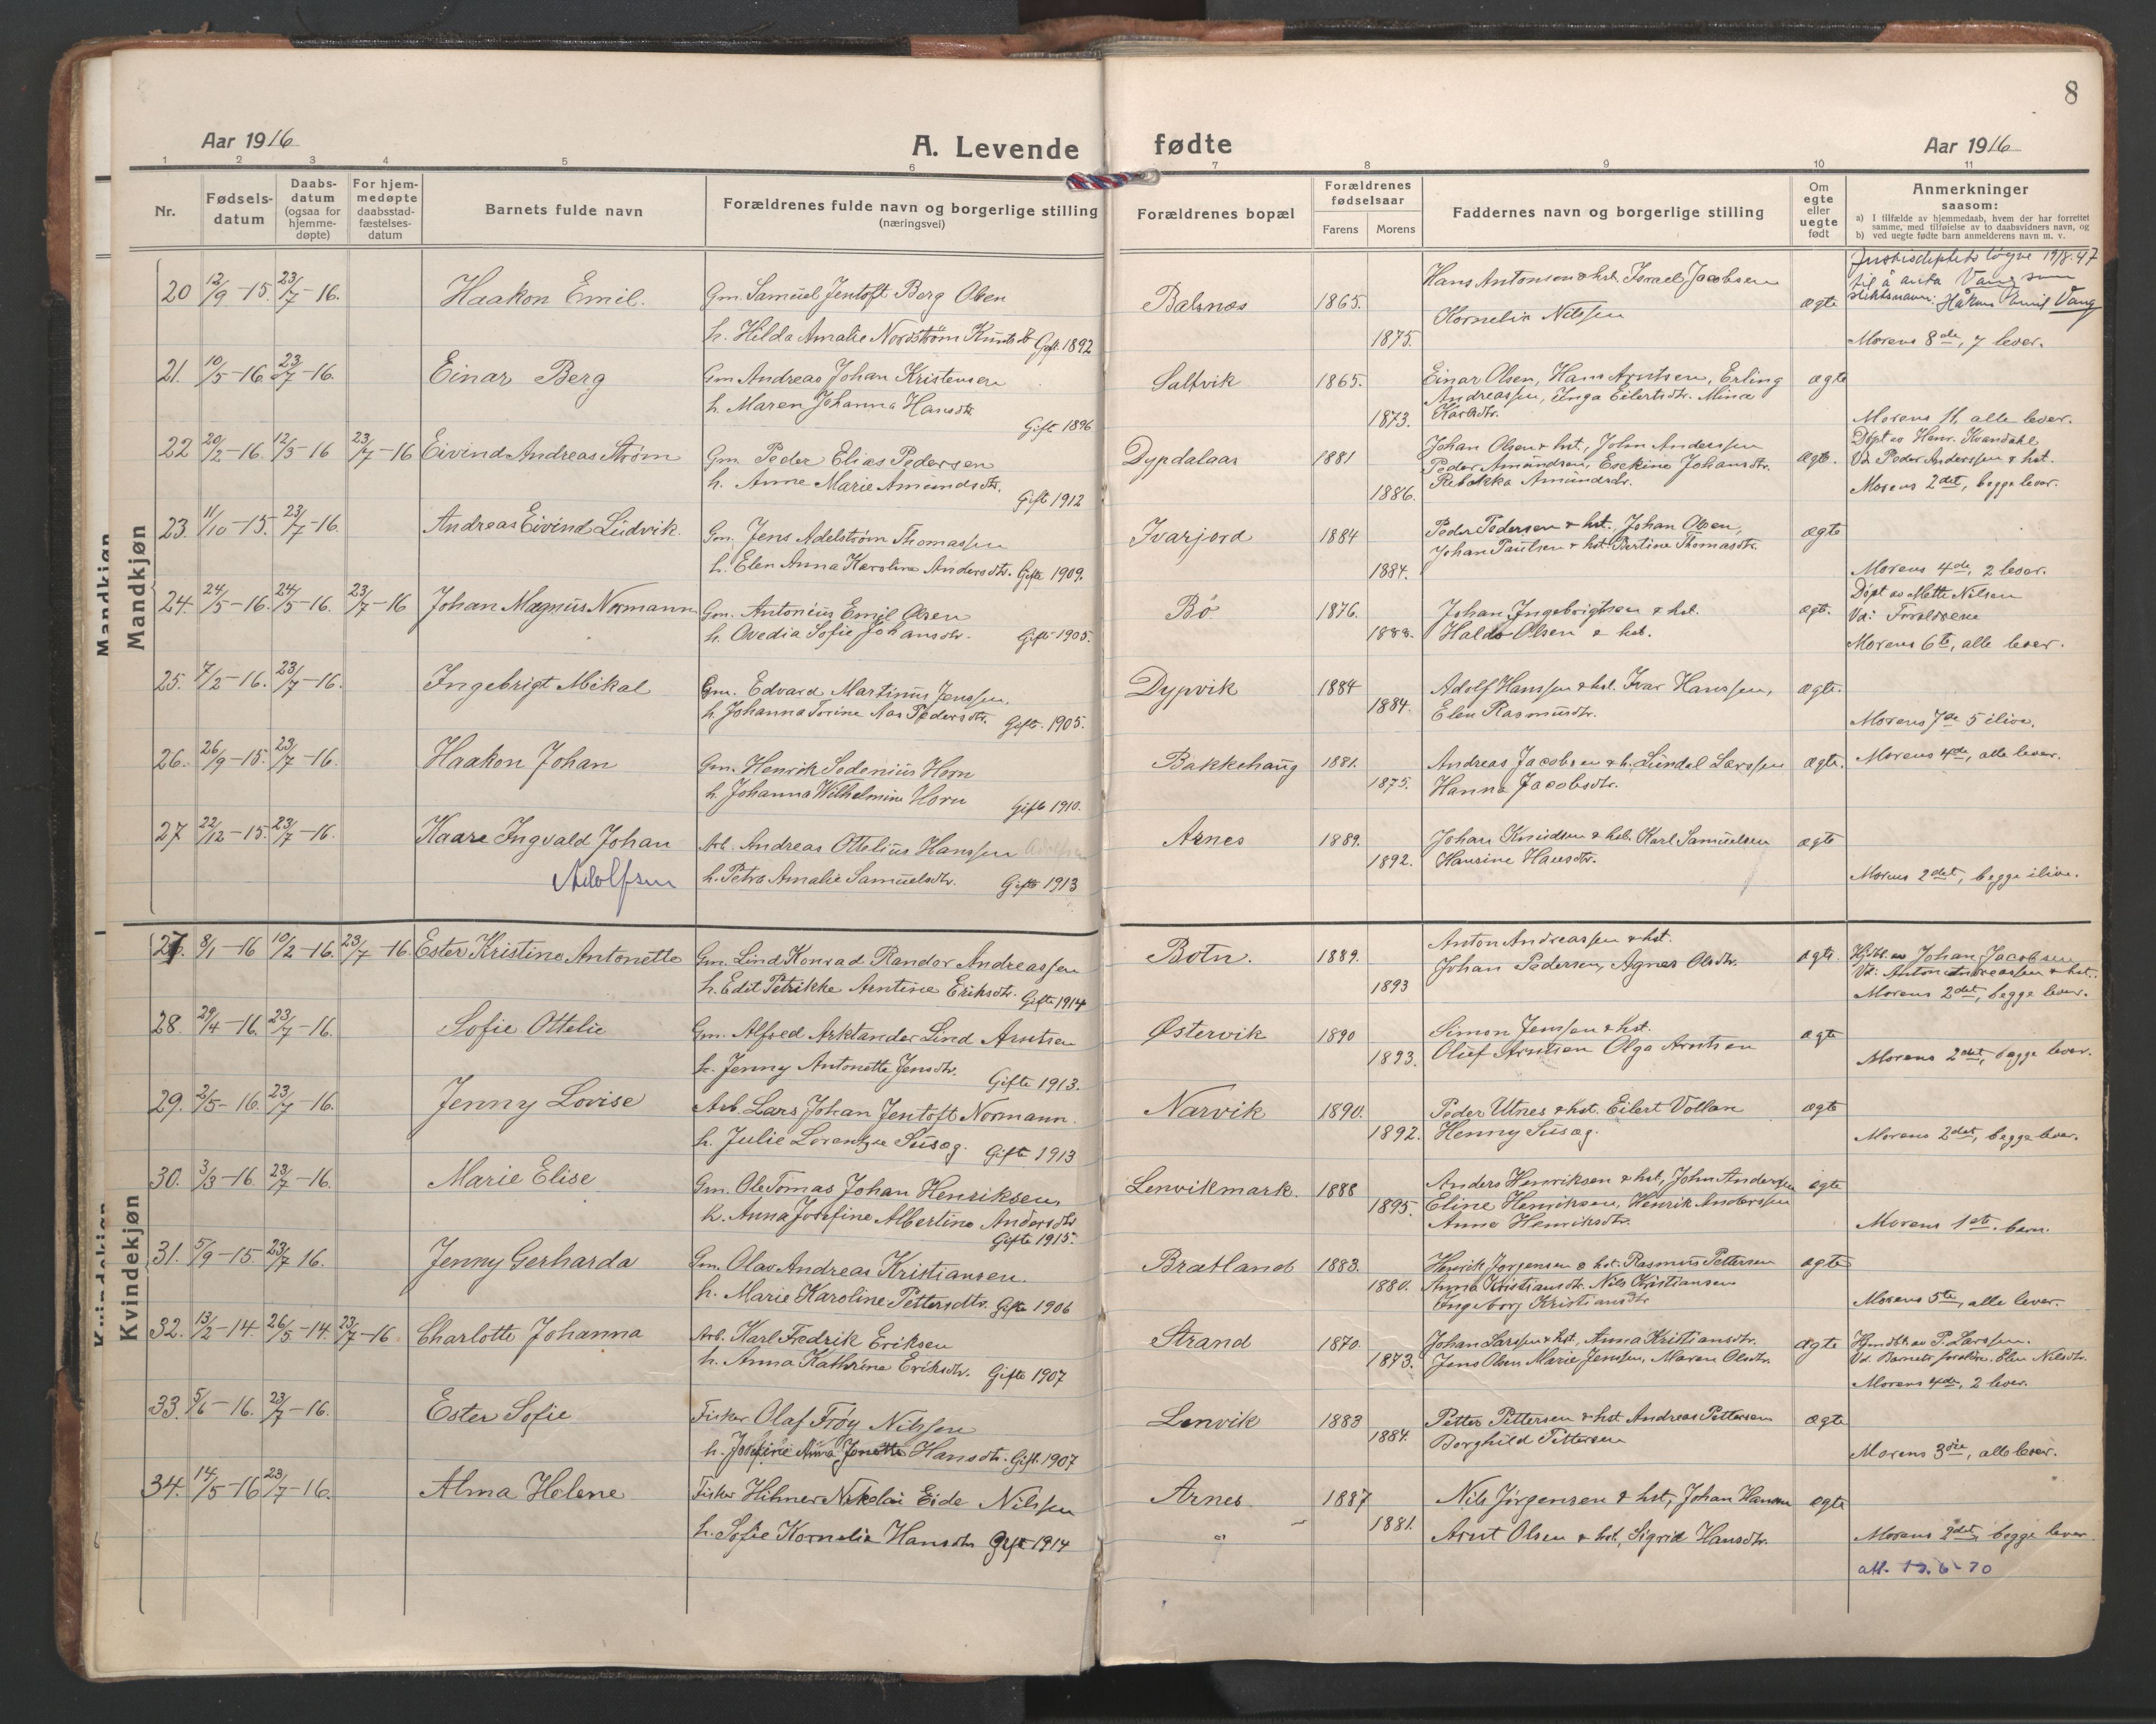 8
Aar 1916
A. Levende fødte
Aar 1916
1 2 3 4 5 6 7 8 9 10 11
Nr.
Fødsels-
datum
Daabs-
datum
(ogsaa for
hjemme-
døpte)
For hjem-
medøpte
daabsstad-
fæstelses-
datum
Barnets fulde navn
Forældrenes fulde navn og borgerlige stilling
(næringsvei)
Forældrenes bopæl
Forældrenes
fødselsaar
Farens Morens
Faddernes navn og borgerlige stilling
Om
egte
eller
uegte
født
Anmerkninger
saasom:
a) I tilfælde av hjemmedaab, hvem der har forrettet
samme, med tilføielse av to daabsvidners navn, og
b) ved uegte fødte barn anmelderens navn m. v.
Mandkjøn
Mandkjøn
20 12/9-15. 23/7-16. Haakon Emil. Gm. Samuel Jentoft Berg Olsen
h. Hilda Amalie Nordstrøm Gift 1892
Balsnes 1865. 1875.
Hans Antonsen & hst. Israel Jacobsen
Kornelia Nilssen
ægte
19/8.47
til å anta Vang som
slektsnavn: Håkon Emil Vang
Morens 8de, 7 lever.
21. 10/5-16 23/7-16. Einar Berg Gm Andreas Johan Kristensen
h. Maren Johanna Hansdtr.
Gift 1896
Salfvik 1865. 1873.
Einar Olsen, Hans Arntsen, Erling
Andreassen, Inga Eilertsdtr. Mina
Karlsdtr.
ægte
Morens 11, alle lever.
22 20/2-16. 12/3-16 23/7-16 Eivind Andreas Strøm Gm. Peder Elias Pedersen
h. Anne Marie Amundsdtr.
Gift 1912
Dypdalaas 1881 1886.
Johan Olsen & hst., John Anderssen
Peder Amundsen, Esekine Johansdtr.
Rebekka Amundsdtr.
ægte.
Døpt av Henr. Kvandahl
Vd. Peder Anderssen & hst.
Morens 2det, begge lever.
23. 11/10-15. 23/7-16. Andreas Eivind Ludvik. Gm. Jens Adelstrøm Thomassen
h. Elen Anna Karoline Andersdtr. Gifte 1909.
Ivarjord 1884 1884.
Peder Pedersen & hst., Johan Olsen,
Johan Paulsen & hst. Bertine Thomasdtr.
ægte
Morens 4de, 2 lever.
24. 24/5-16. 24/5-16. 23/7-16 Johan Magnus Normann Gm. Antonius Emil Olsen
h. Ovedia Sofie Johansdtr. Gift 1905.
Bö 1876. 1883.
Johan Ingebrigtsen & hst.
Haldo Olsen & hst.
ægt.
Døpt av Mette Nilsen
Vd: Foreldrene
Morens 6te, alle lever.
25. 7/2-16. 23/7-16. Ingebrigt Mikal Gm. Edvard Martinus Jenssen.
h. Johanna Torine Aas Pedersdtr. Gift. 1905.
Dypvik 1884 1884.
Adolf Hanssen & hst. Ivar Hanssen,
Elen Rasmusdtr.
ægte.
Morens 7de 5 ilive.
26. 26/9-15. 23/7-16. Haakon Johan Gm. Henrik Sedenius Horn
h. Johanna Wilhelmine Horn Gifte 1910.
Bakkehaug 1881. 1875.
Andreas Jacobsen & h. Lindal Larssen
Hanna Jacobsdtr.
ægte.
Morens 4de, alle lever.
27 22/12-15. 23/7-16. Kaare Ingvald Johan
Adolfsen
Arb. Andreas Ottelius Hanssen Adolfsen
h. Petra Amalie Samuelsdtr. Gifte 1913
Arnes 1889. 1892.
Johan Knudsen & hst. Karl Samuelsen
Hansine Hansdtr.
ægte
Morens 2det, begge ilive.
Kvindekjøn
Kvindekjøn
27. 8/1-16 10/2-16. 23/7-16. Ester Kristine Antonette Gm. Lind Konrad Randor Andreassen
h. Edit Petrikke Arntine Eriksdtr. Gifte 1914
Botn. 1889. 1893
Anton Andreassen & hst.
Johan Pedersen, Agnes Olsdtr.
ægte.
Hjdbt. av Johan Jacobsen
Vd: Anton Andreassen & hst.
Morens 2det, begge lever.
28. 29/4-16. 23/7-16. Sofie Ottelie Gm. Alfred Arktander Lind Arntsen
h. Jenny Antonette Jensdtr.
Gifte 1913.
Østervik 1890 1893.
Simon Jenssen & hst.
Oluf Arntsen Olga Arntsen
ægte
Morens 2det, begge lever.
29. 2/5-16. 23/7-16. Jenny Lovise Arb. Lars Johan Jentoft Normann.
h. Julie Lorentze Susæg. Gifte 1913
Narvik 1890. 1892.
Peder Utnes & hst. Eilert Vollan
Henny Susæg.
ægte
Morens 2det, begge lever.
30. 3/3-16. 23/7-16. Marie Elise Gm. Ole Tomas Johan Henriksen
h. Anna Josefine Albertine Andersdtr.
Gifte 1915.
Lenvikmark. 1888 1895.
Anders Henriksen & hst, John Anderssen
Eline Henriksen, Henrik Anderssen
Anna Henriksdtr.
ægte
Morens 1ste. barn.
31. 5/9-15. 23/7 16. Jenny Gerharda Gm. Olav Andreas Kristiansen
h. Marie Karoline Pettersdtr. Gifte 1906
Bratland 1883. 1880.
Henrik Jørgensen & hst. Rasmus Pettersen
Anna Kristiansdtr. Nils Kristiansen
Ingeborg Kristiansdtr
ægte
Morens 5te, alle lever.
32. 13/2-14. 26/5-14. 23/7-16. Charlotte Johanna Arb. Karl Fredrik Eriksen
h. Anna Kathrine Eriksdtr. Gifte 1907
Strand 1870. 1873.
Johan Larssen & hst. Anna Kristiansdtr.
Jens Olsen Marie Jenssen, Maren Olsdtr.
ægte
Hjmdbt. av P. Larssen.
Vd. Barnets foreldre. Elen Nilsdtr.
Morens 4de, 2 lever.
33. 5/6-16. 23/7-16. Ester Sofie Fisker Olaf Frøy Nilssen
h. Josefine Anna Jonette Hansdtr. Gift. 1907
Lenvik 1883 1884.
Petter Pettersen & hst. Andreas Pettersen
Borghild Pettersen
ægte
Morens 3die, alle lever.
34. 14/5-16 23/7-16. Alma Helene Fisker Hilmer Nikolai Eide Nilssen
h. Sofie Kornelia Hansdtr Gift 1914
Arnes 1887 1881.
Nils Jörgensen & hst, Johan Hansen
Arnt Olsen & hst, Sigrid Hansdtr.
ægte
Morens 2det, begge lever
att. 13.6-70